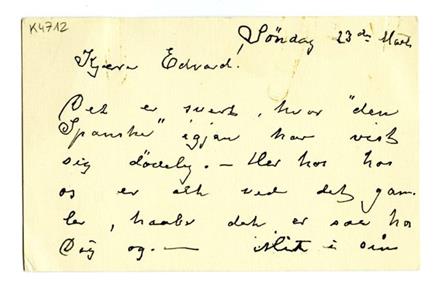 K4712
Søndag 23de Marts
Kjære Edvard!
Det er svært, hvor "den
Spanske" igjen har vist
sig dødelig. — Her hos hos
os er alt ved det gam-
le, haaber det er saa hos
Dig og. —